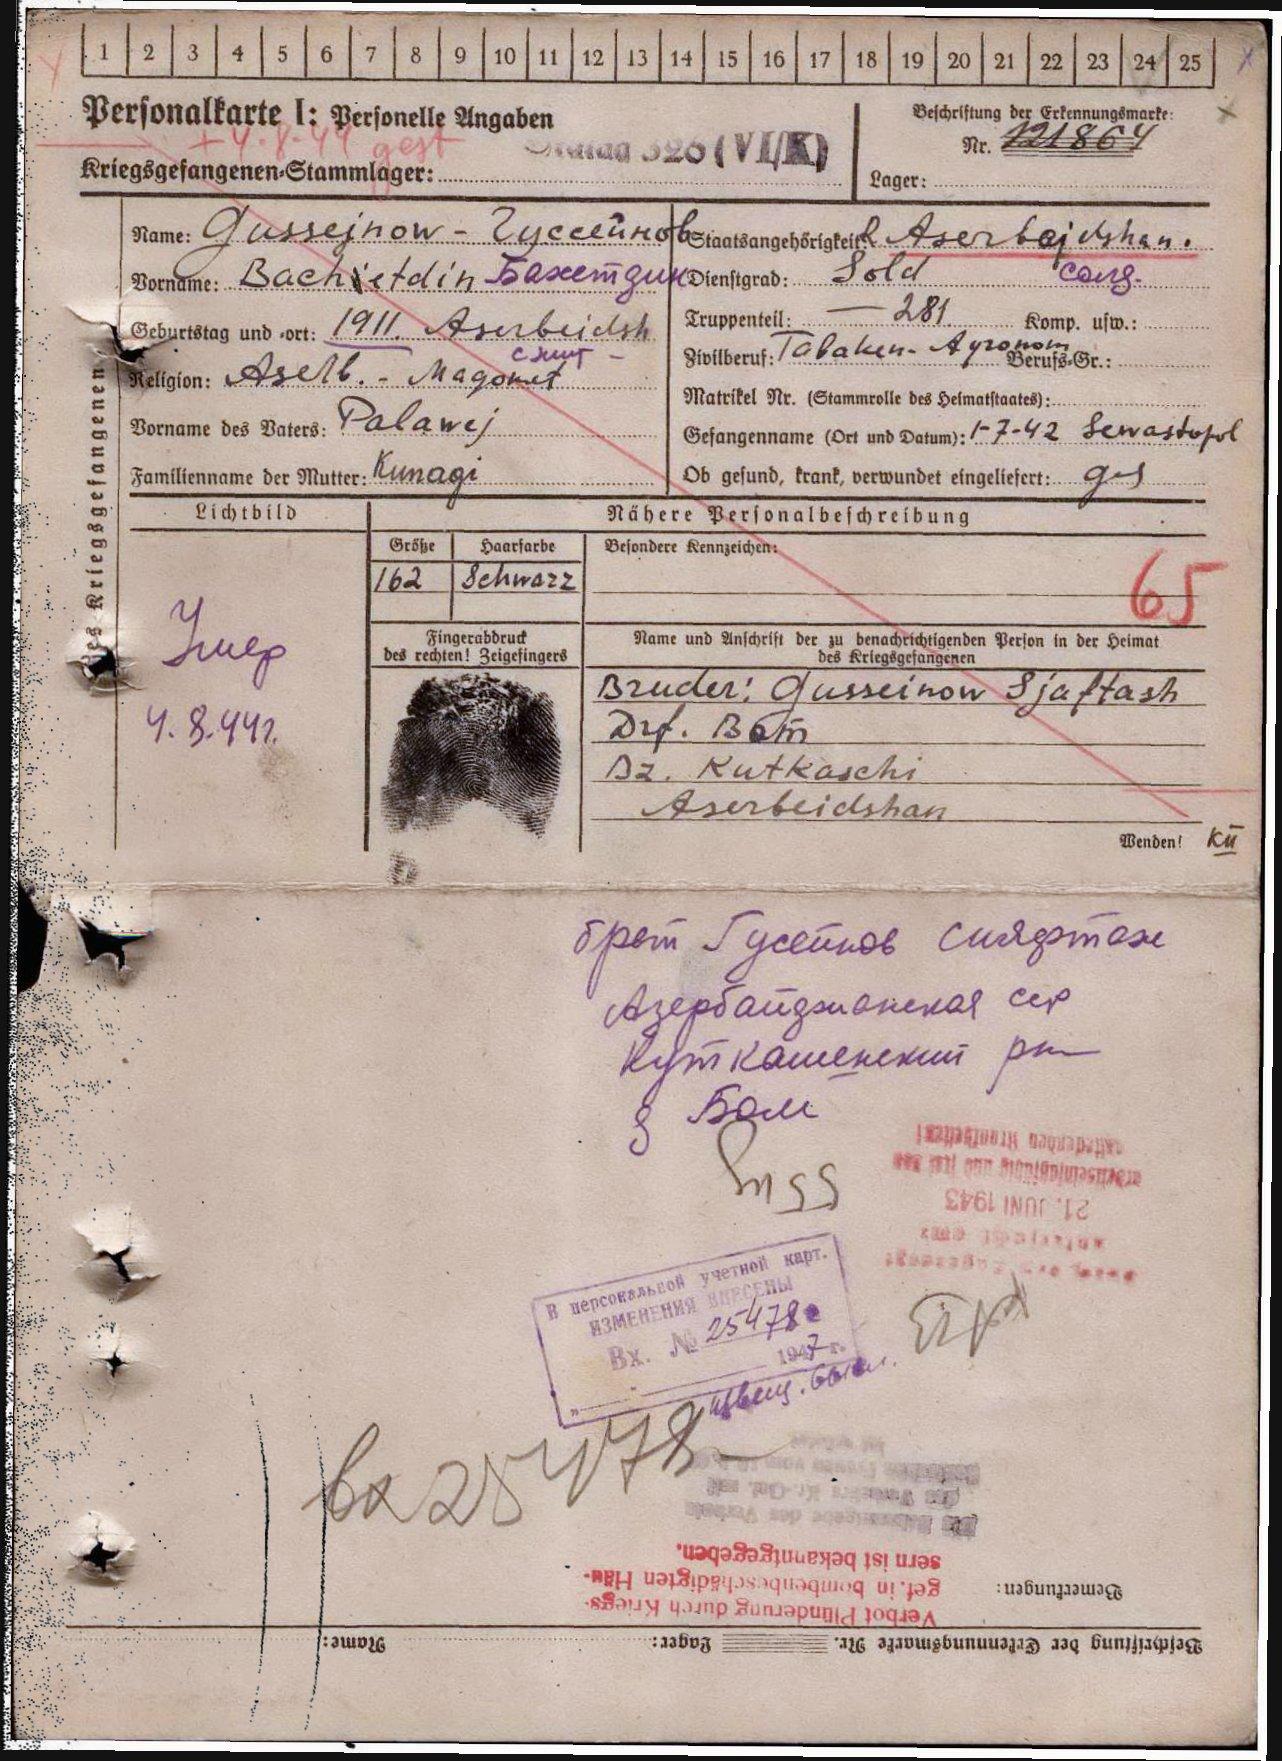 1 2 3 4 5 6 7 8 9 10 11 12 13 14 15 16 17 18 19 20 21 22 23 24 25
Personalkarte I: Personelle Angaben
+ 4.8.44 gest
Kriegsgefangenen-Stammlager: Stalag 326 (VI/K)
Beschriftung der Erkennungsmarke:
Nr. 121864
Lager:
des Kriegsgefangenen
Name: Gussejnow - Гуссейнов
Vorname: Bachietdin Бахетдин
Geburtstag und -ort: 1911. Aserbeidsh
Religion: Aserb. - Magomet
Vorname des Vaters: Palawej
Familienname der Mutter: Kunagi
Staatsangehörigkeit: Aserbajdshan.
Dienstgrad: Sold солд.
Truppenteil: — 281 Komp. usw.:
Zivilberuf: Tabaken- Agronom Berufs-Gr.:
Matrikel Nr. (Stammrolle des Heimatstaates):
Gefangenname (Ort und Datum): 1-7-42 Sewastopol
Ob gesund, krank, verwundet eingeliefert: ges
Lichtbild
Nähere Personalbeschreibung
Größe Haarfarbe Besondere Kennzeichen:
162 Schwarz
65
Fingerabdruck
des rechten! Zeigefingers
Name und Anschrift der zu benachrichtigenden Person in der Heimat
des Kriegsgefangenen
Bruder: Gusseinow Sjaftash
Drf. Bom
Bz. Kutkaschi
Aserbeidshan
Умер
4.8.44г.
Wenden! KII
брат Гусейнов Сияфтаж
Азербайджанская сср
Куткашенский рн
д Бом
entlassenden Krankheiten!
arbeitseinsatzfähig und frei von
21. JUNI 1943
В персональной учетной карт.
ИЗМЕНЕНИЯ ВНЕСЕНЫ
Вх. № 25478с
1947 г.
извещ. высл.
вх 25478
Verbot Plünderung durch Kriegs-
gef. in bombenbeschädigten Häu-
sern ist bekanntgegeben.
Bemerkungen:
Beschriftung der Erkennungsmarke Nr. Lager: Name: